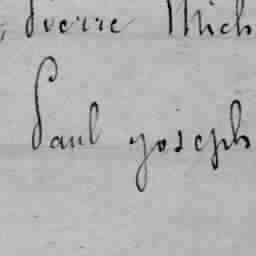 , Pierre Mich
Paul joseph